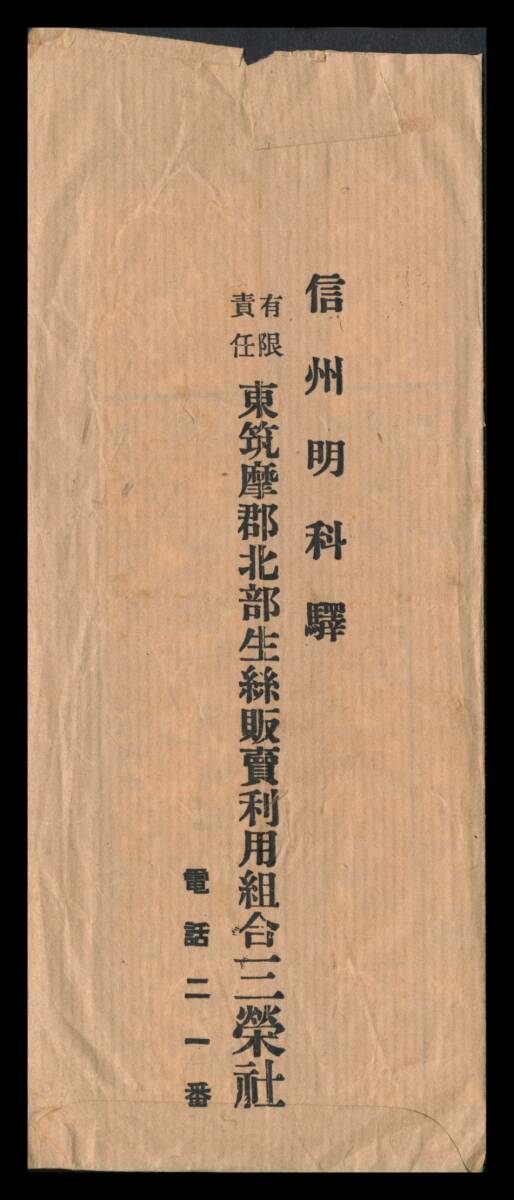 信州明科驛
有限責任
東筑摩郡北部生絲販賣利用組合三榮社
電話二一番